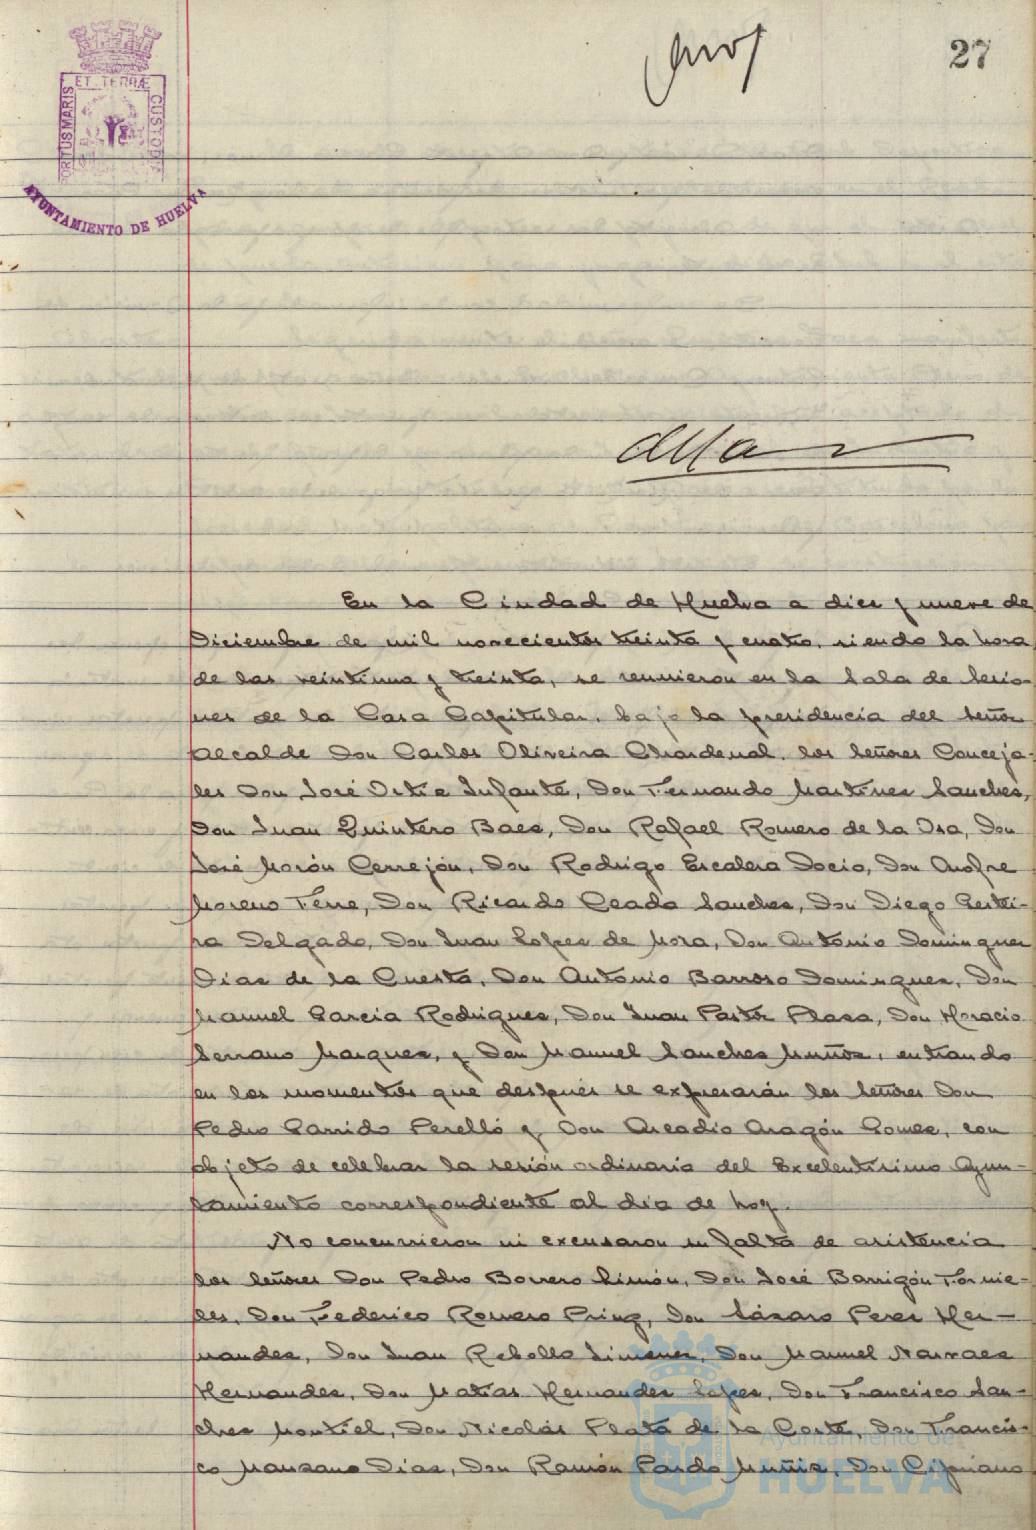 27
ET TERRÆ
PORTUS MARIS
CUSTODIA
AYUNTAMIENTO DE HUELVA
En la Ciudad de Huelva a diez y nueve de
Diciembre de mil novecientos treinta y cuatro, siendo la hora
de las veintiuna y treinta, se reunieron en la Sala de Sesio-
nes de la Casa Capitular, bajo la presidencia del Señor
Alcalde Don Carlos Oliveira Chardenal, los Señores Conceja-
les Don José Ortiz Infante, Don Fernando Martinez Sanchez,
Don Juan Quintero Baez, Don Rafael Romero de la Osa, Don
José Morón Cerrejón, Don Rodrigo Escalera Docio, Don Onofre
Moreno Terre, Don Ricardo Ceada Sanchez, Don Diego
Delgado, Don Juan Lopez de Mora, Don Antonio Dominguez
Diaz de la Cuesta, Don Antonio Barroso Dominguez, Don
Manuel Garcia Rodriguez, Don Juan Pastor Plaza, Don Horacio
Serrano Marquez, y Don Manuel Sanchez Muñoz, entrando
en los momentos que después se expresarán los Señores Don
Pedro Garrido Perelló y Don Arcadio Aragón Gomez, con
objeto de celebrar la sesión ordinaria del Excelentísimo Ayun-
tamiento correspondiente al día de hoy.
No concurrieron ni excusaron su falta de asistencia
los Señores Don Pedro Borrero Limón, Don José Barrigón Fornie-
les, Don Federico Romero Pring, Don Lázaro Perez Her-
nandez, Don Juan Rebollo Jimenez, Don Manuel Narvaez
Hernandez, Don Matias Hernandez Lopez, Don Francisco San-
chez Montiel, Don Nicolás Plata de la Corte, Don Francis-
co Manzano Diaz, Don Ramón Pardo Muñiz, Don Cipriano
Ayuntamiento de
HUELVA